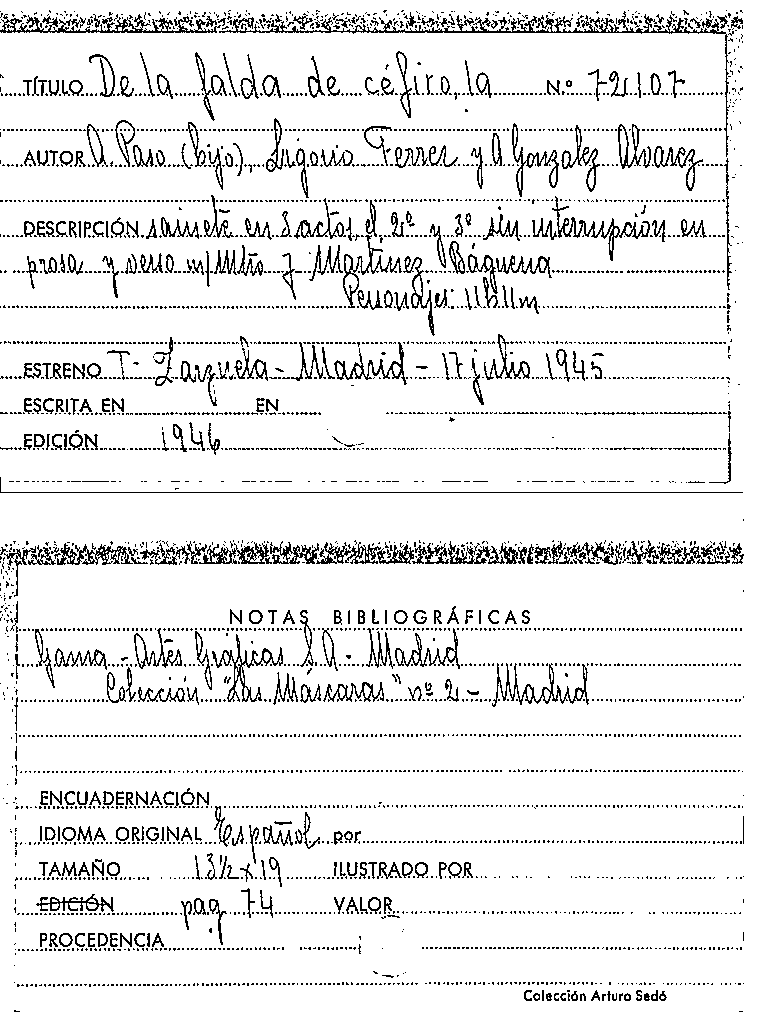 TÍTULO De la falda de céfiro, la N.º 72107
AUTOR A. Paso (hijo), Ligorio Ferrer y A Gonzalez Alvarez
DESCRIPCIÓN sainete en 3 actos, el 2º y 3º sin interrupción en
prosa y verso m/ Mtro J Martínez Báguena
Personajes: 11h 11m
ESTRENO T- Zarzuela - Madrid - 17 julio 1945
ESCRITA EN EN
EDICIÓN 1946
NOTAS BIBLIOGRÁFICAS
Gama - Artes Gráficas S.A - Madrid
Colección "Las Máscaras" nº 2 - Madrid
ENCUADERNACIÓN
IDIOMA ORIGINAL Español por
TAMAÑO 13½ x 19 ILUSTRADO POR
EDICIÓN pag 74 VALOR
PROCEDENCIA
Colección Arturo Sedó